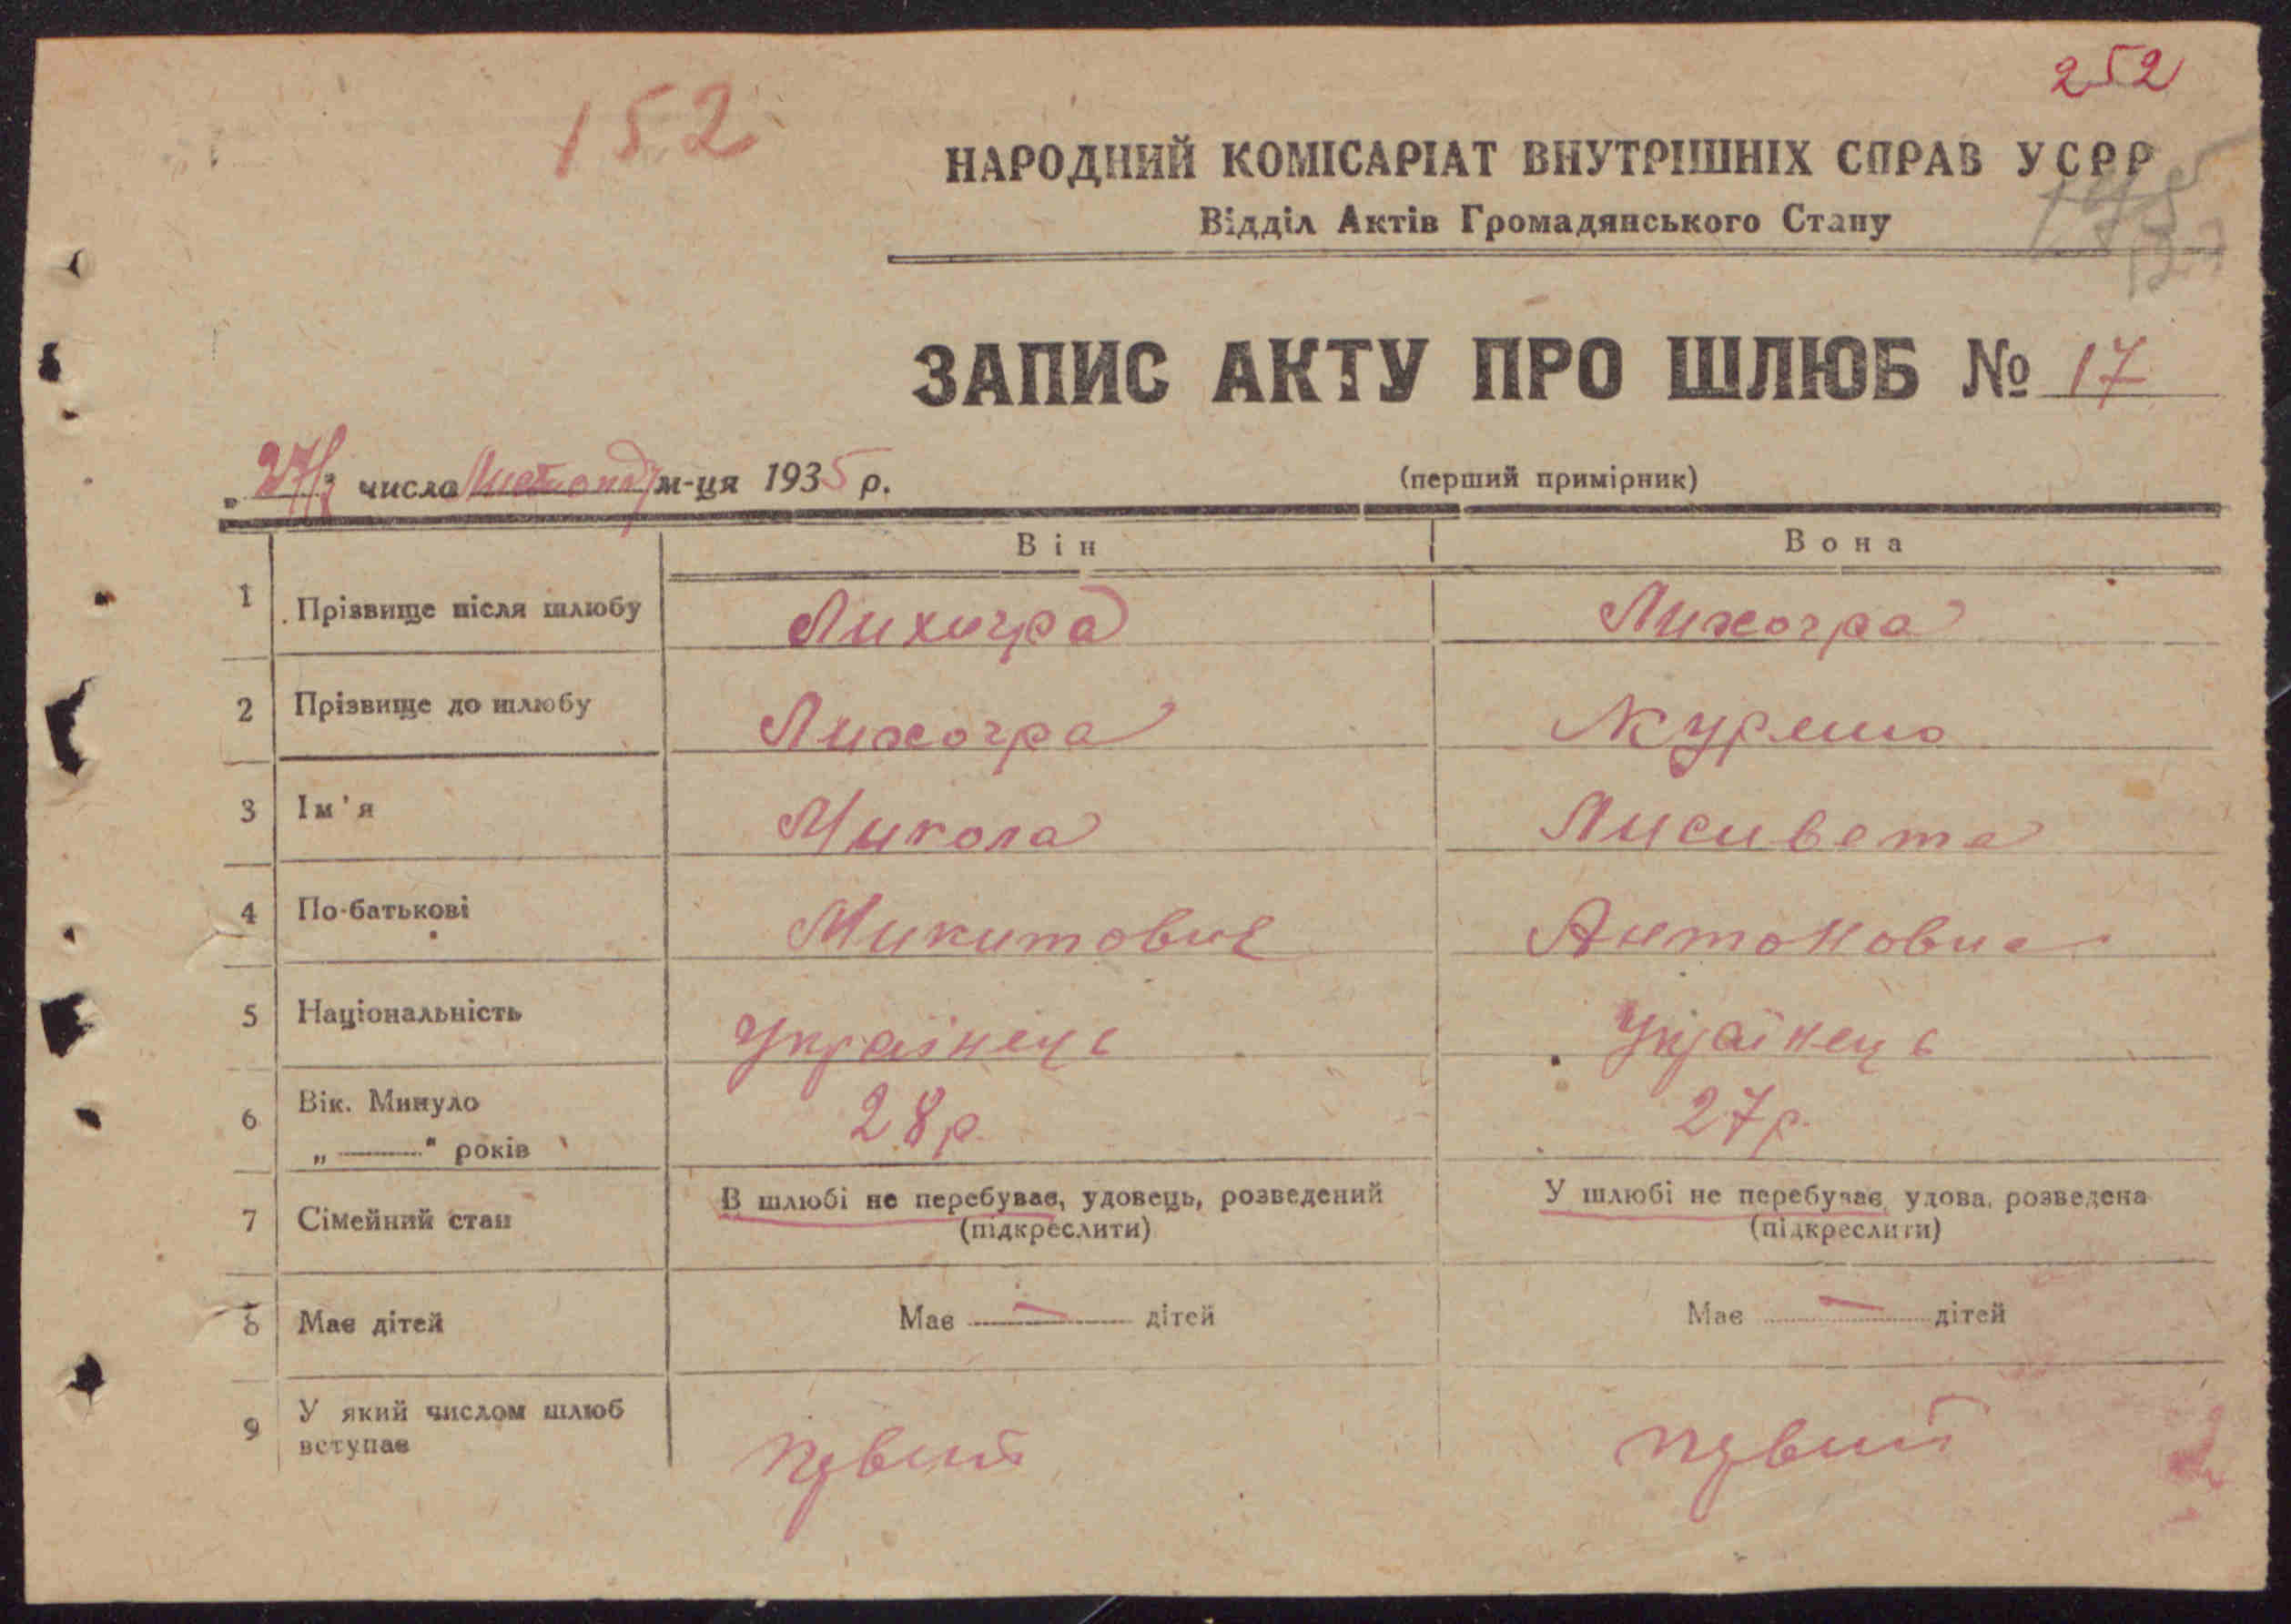 252
152
НАРОДНИЙ КОМІСАРІАТ ВНУТРІШНІХ СПРАВ УСРР
Відділ Актів Громадянського Стану
ЗАПИС АКТУ ПРО ШЛЮБ № 17
„27/ числа Листопад м-ця 1935 р.
(перший примірник)
Він Вона
1 Прізвище після шлюбу Лихогра Лихогра
2 Прізвище до шлюбу Лихогра
3 Ім'я Микола Лисивета
4 По-батькові Микитович Антоновна
5 Національність Українець Українець
6 Вік. Минуло 28 р. 27 р.
„———" років
7 Сімейний стан В шлюбі не перебуває, удовець, розведений У шлюбі не перебуває, удова, розведена
(підкреслити) (підкреслити)
8 Має дітей Має — дітей Має — дітей
9 У який числом шлюб
вступає первий первий